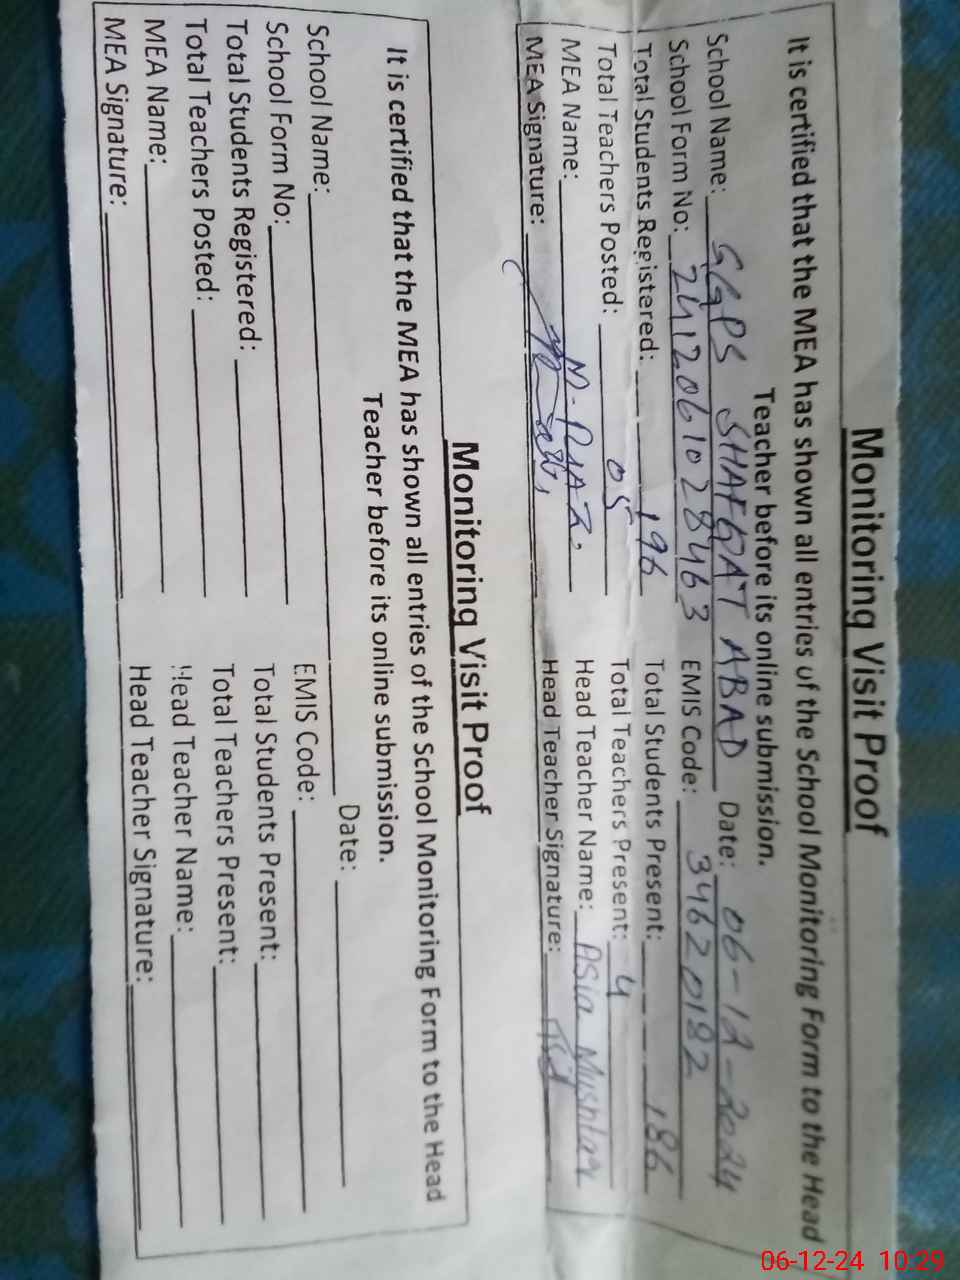 Monitoring Visit Proof
It is certified that the MEA has shown all entries of the School Monitoring Form to the Head
Teacher before its online submission.
School Name: GGPS SHAFQAT ABAD Date: 06-12-2024
School Form No: 2412061028463 EMIS Code: 34620182
Total Students Registered: 196 Total Students Present: 186
Total Teachers Posted: 05 Total Teachers Present: 4
MEA Name: M. RIAZ. Head Teacher Name: Asia Mushtaq
MEA Signature: Head Teacher Signature:
Monitoring Visit Proof
It is certified that the MEA has shown all entries of the School Monitoring Form to the Head
Teacher before its online submission.
School Name: Date:
School Form No: EMIS Code:
Total Students Registered: Total Students Present:
Total Teachers Posted: Total Teachers Present:
MEA Name: Head Teacher Name:
MEA Signature: Head Teacher Signature:
06-12-24 10:29